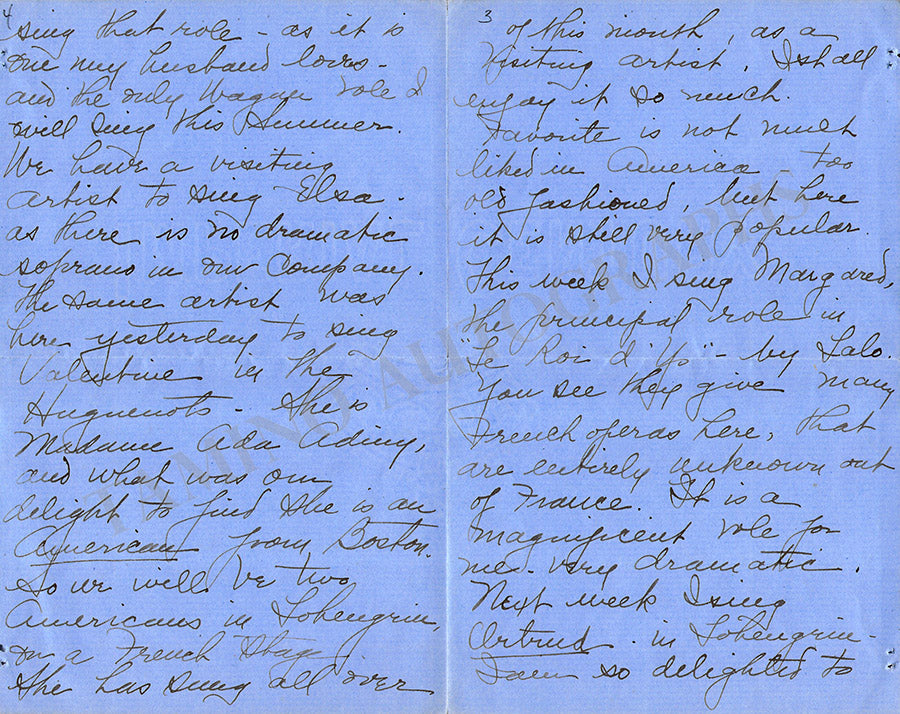 3
of this month, as a
visiting artist. I shall
enjoy it so much.
Favorite is not much
liked in America - too
old fashioned, but here
it is still very popular.
This week I sing Margared,
the principal role in
"Le Roi d'Ys" - by Lalo.
You see they give many
French operas here, that
are entirely unknown out
of France. It is a
magnificent role for
me - very dramatic.
Next week I sing
Ortrud - in Lohengrin -
I am so delighted to
4
sing that role - as it is
one my husband loves -
and the only Wagner role I
will sing this summer.
We have a visiting
artist to sing Elsa -
as there is no dramatic
soprano in our Company.
The same artist was
here yesterday to sing
Valentine in the
Huguenots - She is
Madame Ada Adiny,
and what was our
delight to find she is an
American from Boston.
So we will be two
Americans in Lohengrin,
on a French Stage
She has sung all over
TAMINO AUTOGRAPHS